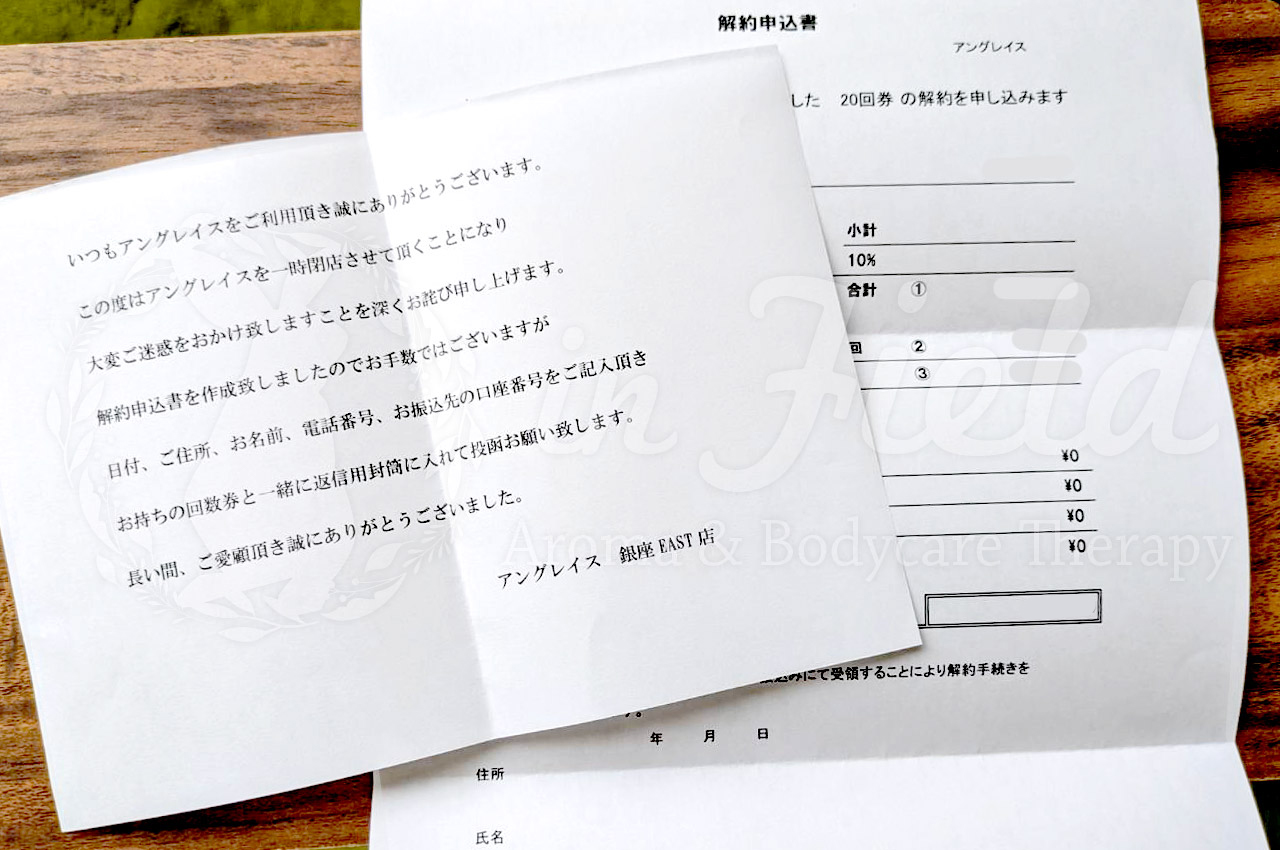 解約申込書
アングレイス
した 20回券 の解約を申し込みます
小計
10%
合計 ①
回 ②
③
¥0
¥0
¥0
¥0
込みにて受領することにより解約手続きを
す。
年 月 日
住所
氏名
いつもアングレイスをご利用頂き誠にありがとうございます。
この度はアングレイスを一時閉店させて頂くことになり
大変ご迷惑をおかけ致しますことを深くお詫び申し上げます。
解約申込書を作成致しましたのでお手数ではございますが
日付、ご住所、お名前、電話番号、お振込先の口座番号をご記入頂き
お持ちの回数券と一緒に返信用封筒に入れて投函お願い致します。
長い間、ご愛顧頂き誠にありがとうございました。
アングレイス 銀座 EAST 店
in Field
Aroma & Bodycare Therapy